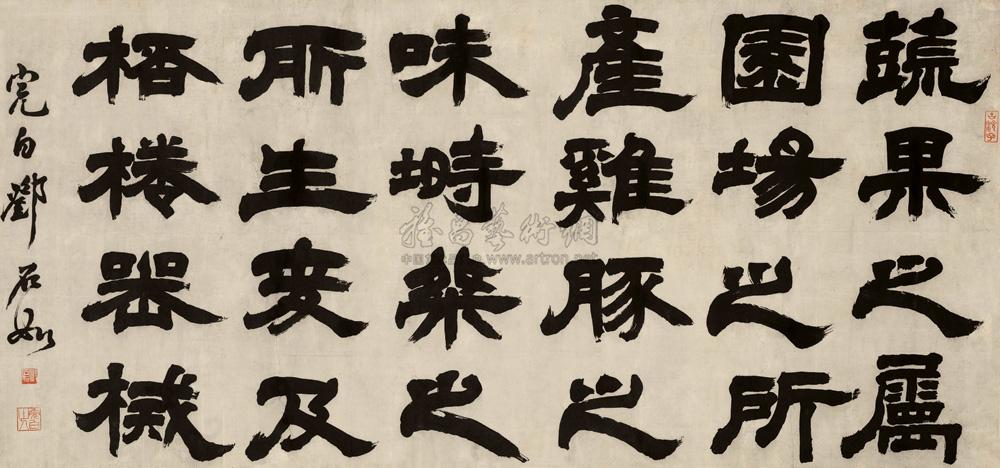 蔬果之屬
園場之所
產雞豚之
味塒桀之
所生爰及
桮棬器械
完白鄧石如
雅昌藝術網
www.artron.net